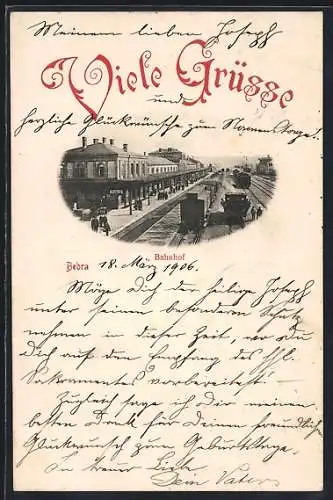 Meinem lieben Joseph
Viele Grüsse
und
herzliche Glückwünsche zum Namenstage!
Bahnhof
Bebra 18. März 1906.
Möge Dich der heilige Joseph
unter seinen besonderen Schutz
nehmen in dieser Zeit, wo Du
Dich auf den Empfang des Hhl.
Sakramentes vorbereitest!
Zugleich sage ich Dir meinen
besten Dank für Deinen freundlichen
Glückwunsch zum Geburtstage.
In treuer Liebe
Dein Vater